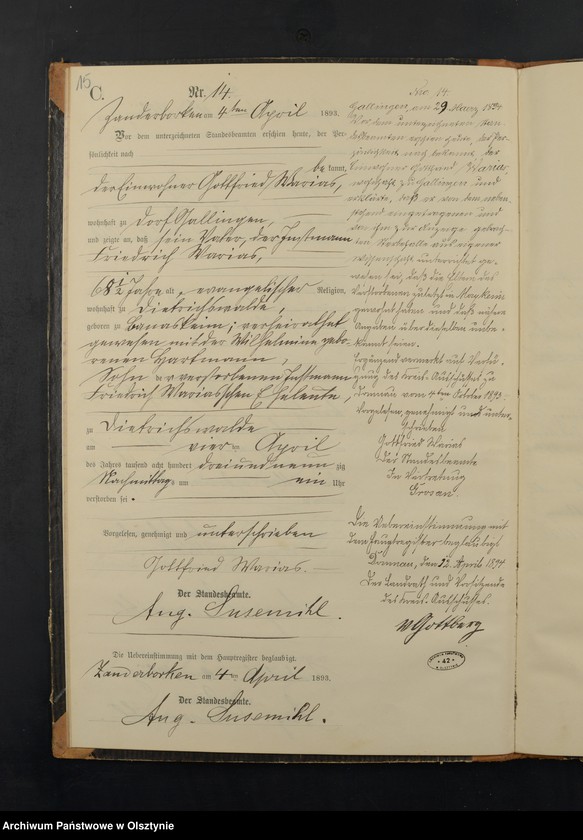 15
C.
Nr. 14.
Zanderborken am 4ten April 1893.
Vor dem unterzeichneten Standesbeamten erschien heute, der Per-
sönlichkeit nach
be kannt,
der Einwohner Gottfried Warias,
wohnhaft zu Dorf Gallingen,
und zeigte an, daß sein Vater, der Instmann
Friedrich Warias,
68 1/2 Jahre alt, evangelischer Religion,
wohnhaft zu Dietrichswalde,
geboren zu ; verheirathet
gewesen mit der Wilhelmine gebo-
renen Hartmann,
Sohn der verstorbenen Instmann
Friedrich Warias'schen Eheleute,
zu Dietrichswalde
am vier ten April
des Jahres tausend acht hundert dreiundneun zig
Nachmittags um ein Uhr
verstorben sei.
Vorgelesen, genehmigt und unterschrieben
Gottfried Warias.
Der Standesbeamte.
Aug. Susemihl.
Die Uebereinstimmung mit dem Hauptregister beglaubigt.
Zanderborken am 4ten April 1893.
Der Standesbeamte.
Aug. Susemihl.
Nro 14.
Gallingen, am 29 März 1894
Vor dem unterzeichneten Stan-
desbeamten erschien heute, der Per-
sönlichkeit nach bekannt, der
Einwohner Gottfried Warias,
wohnhaft zu Gallingen und
erklärte, daß er von dem neben-
stehend eingetragenen und
von ihm zur Anzeige gebrach-
ten Sterbefalle aus eigener
Wissenschaft unterrichtet ge-
wesen sei, daß die Eltern des
Verstorbenen zuletzt in
gewohnt haben und daß nähere
Angaben über dieselben unbe-
kannt seien.
Ergänzend vermerkt auf Verfü-
gung des Kreis-Ausschusses zu
vom 4ten 1893.
Vorgelesen, genehmigt und unter-
schrieben
Gottfried Warias
Der Standesbeamte
In Vertretung
Die Uebereinstimmung mit
dem Hauptregister beglaubigt
den 12. April 1894
Der Landrath und Vorsitzende
des Kreis-Ausschusses.
v Gottberg
* 42 *
Archiwum Państwowe w Olsztynie